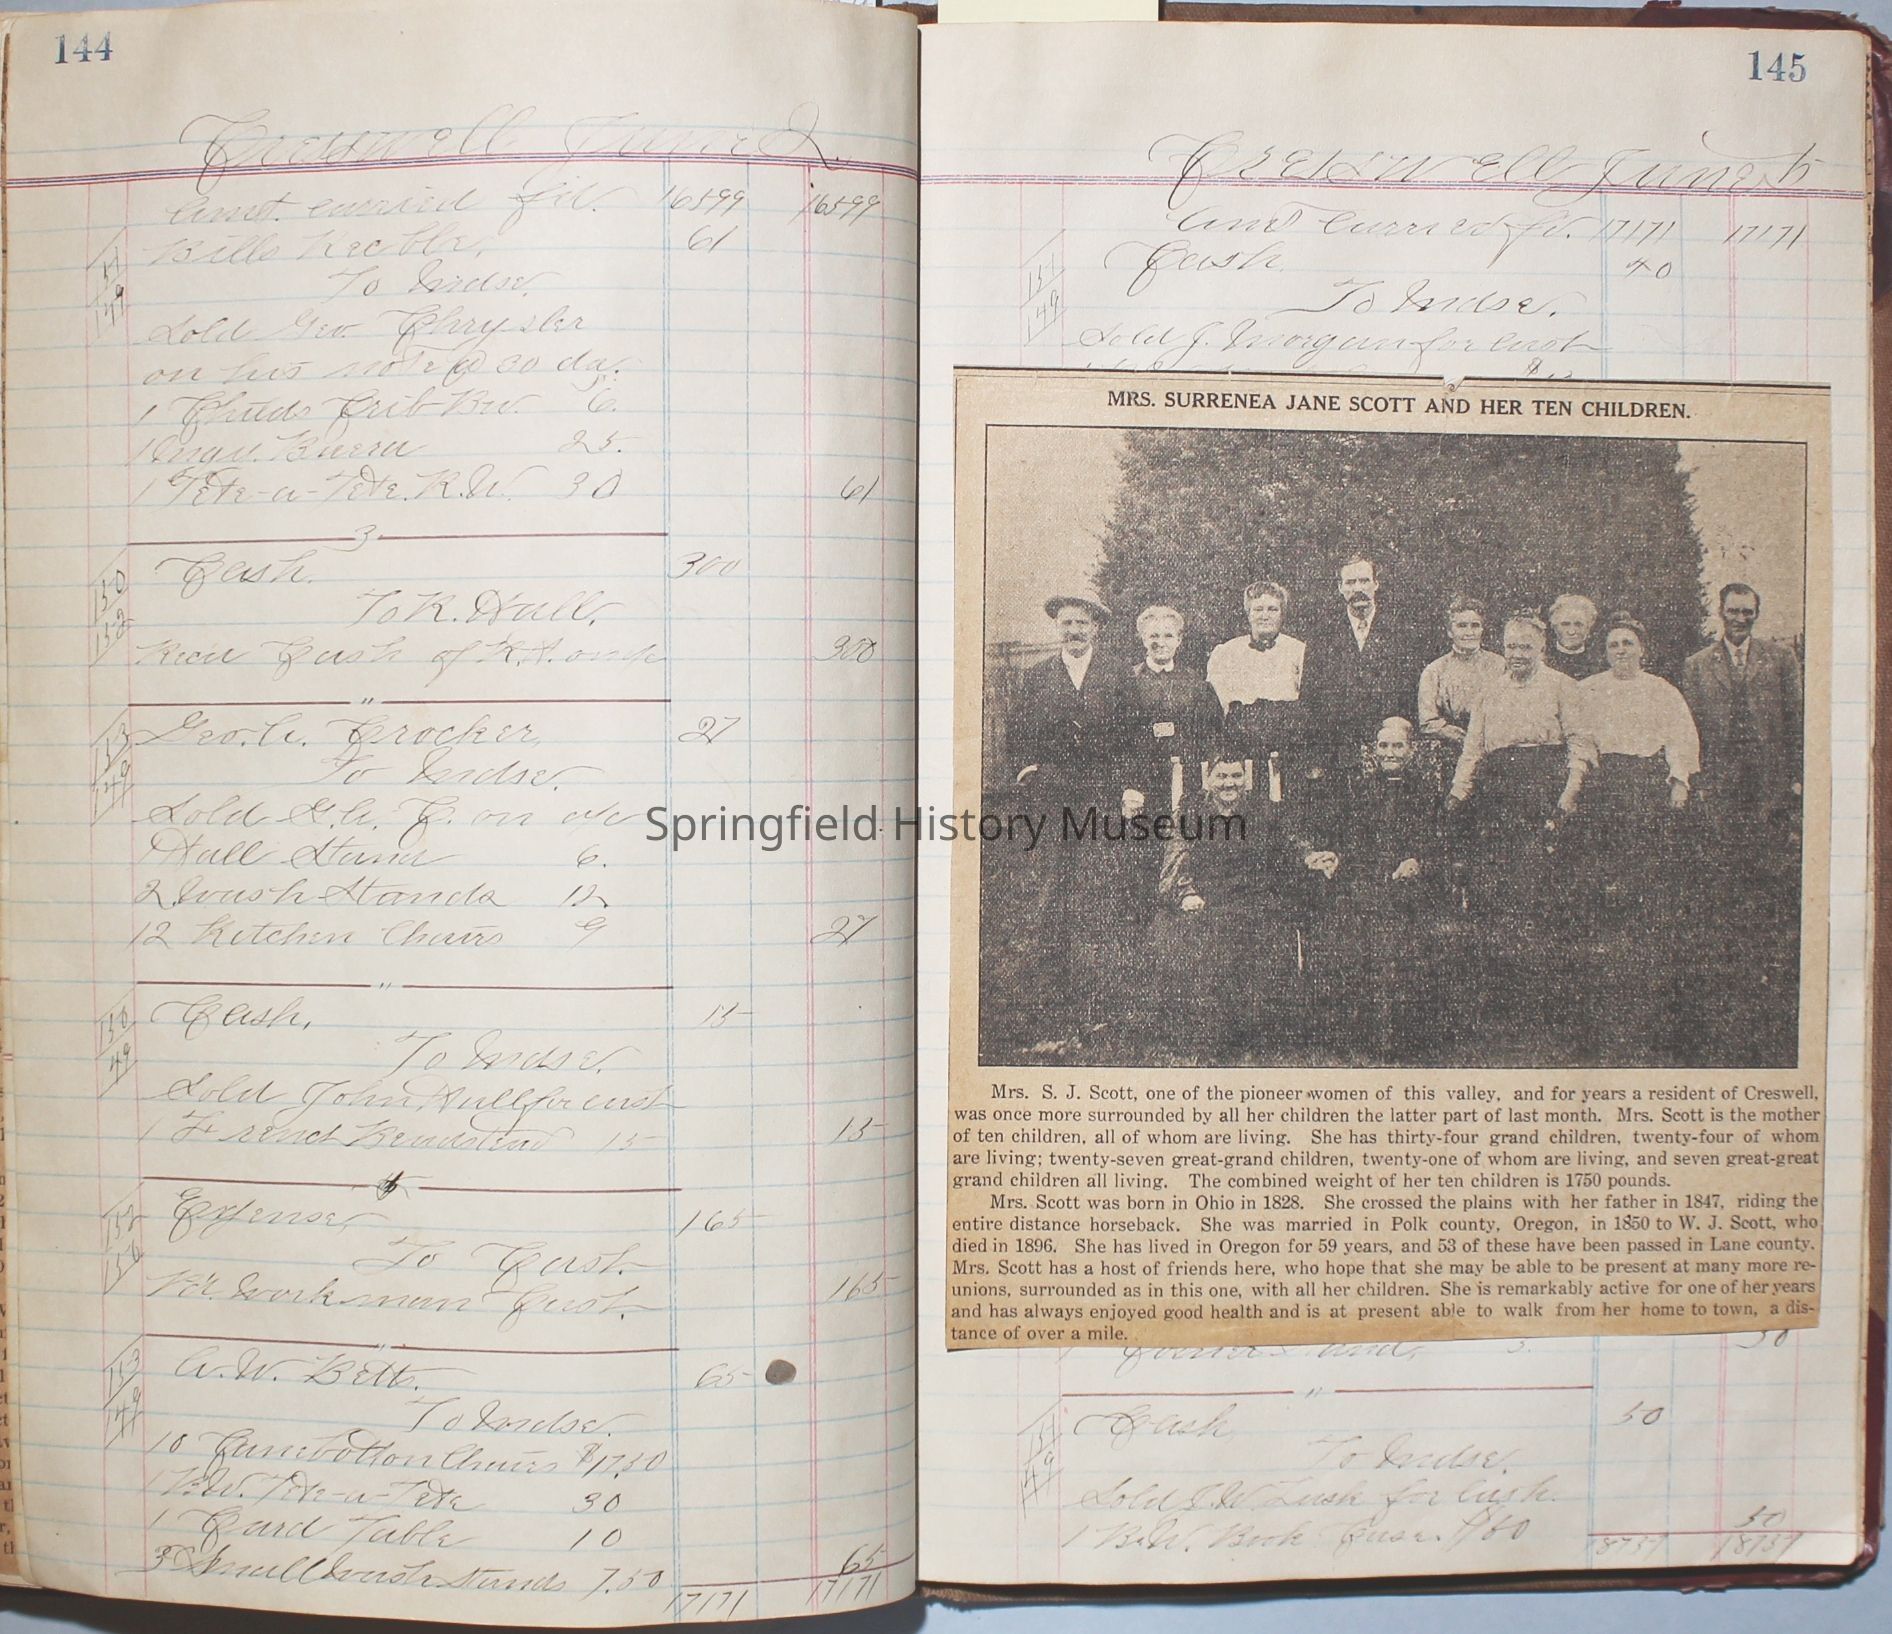 144
Creswell June 2.
Amt. carried fd. 16599 16599
Bills Rec'ble, 61
To Mdse.
Sold Geo. Chrysler
on his note @ 30 da.
1 Childs Crib B.W. 6.
1 Bureau 25.
1 Tete-a-Tete. R.W. 30 61
3
Cash. 300
To R. Hull.
Rec'd Cash of R.H. on 300
"
Geo. A. Crocker, 27
To Mdse.
Sold G.A. C. on a/c
1 Hall Stand 6.
2 Wash Stands 12
12 Kitchen Chairs 9 27
"
Cash, 15
To Mdse.
Sold John Hull for cash
1 French Beadstead 15 15
Expense, 165
To Cash.
Pd. Workman Cash. 165
"
A.W. Betts. 65
To Mdse.
10 Canebottom Chairs $17.50
1 B.W. Tete-a-Tete 30
1 Card Table 10
3 Small Wash Stands 7.50 65
17171 17171
145
Creswell June 5
Amt carried fd. 17171 17171
Cash. 40
To Mdse.
Sold J. Morgan for cash
MRS. SURRENEA JANE SCOTT AND HER TEN CHILDREN.
Springfield History Museum
Mrs. S. J. Scott, one of the pioneer women of this valley, and for years a resident of Creswell,
was once more surrounded by all her children the latter part of last month. Mrs. Scott is the mother
of ten children, all of whom are living. She has thirty-four grand children, twenty-four of whom
are living; twenty-seven great-grand children, twenty-one of whom are living, and seven great-great
grand children all living. The combined weight of her ten children is 1750 pounds.
Mrs. Scott was born in Ohio in 1828. She crossed the plains with her father in 1847, riding the
entire distance horseback. She was married in Polk county, Oregon, in 1850 to W. J. Scott, who
died in 1896. She has lived in Oregon for 59 years, and 53 of these have been passed in Lane county.
Mrs. Scott has a host of friends here, who hope that she may be able to be present at many more re-
unions, surrounded as in this one, with all her children. She is remarkably active for one of her years
and has always enjoyed good health and is at present able to walk from her home to town, a dis-
tance of over a mile.
"
Cash, 50
To Mdse.
Sold Lusk for Cash.
1 B.W. Book Case. 50
18737 18737